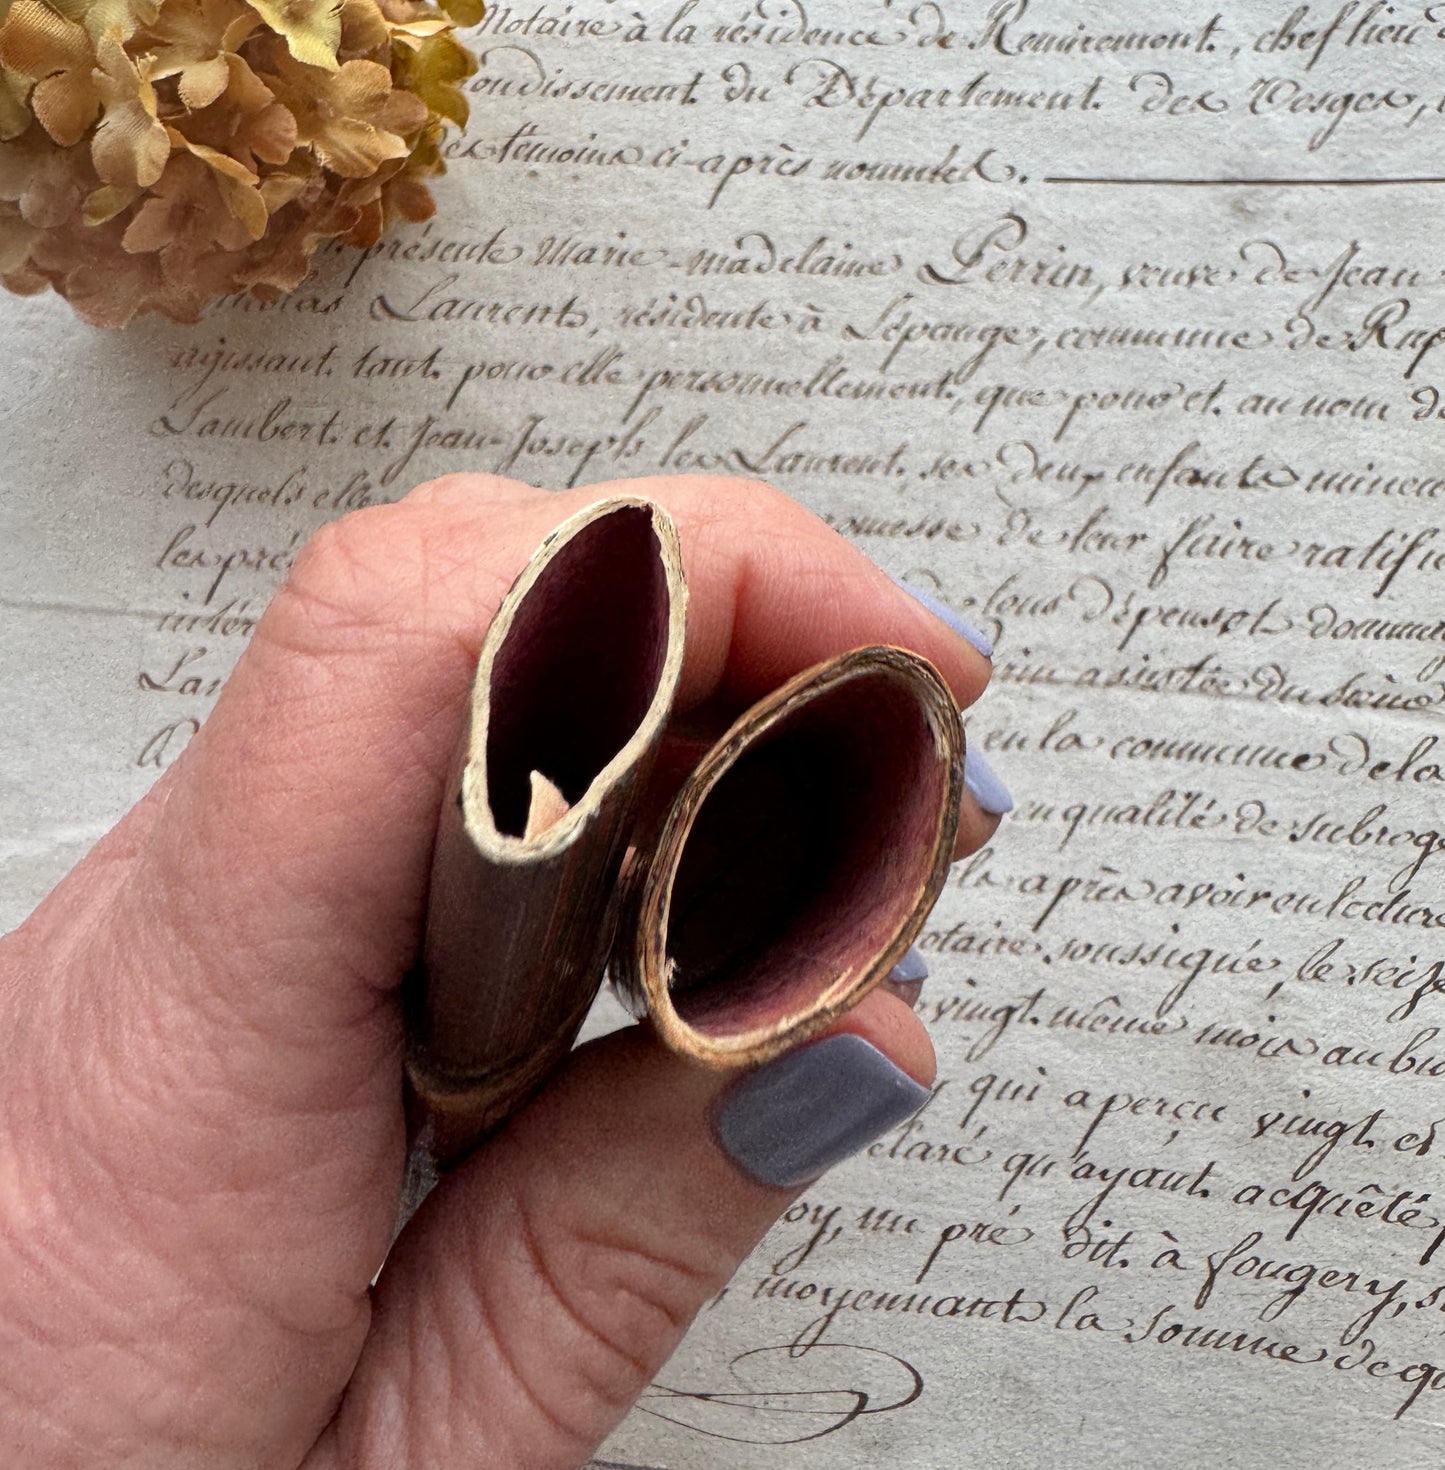 Notaire à la résidence de Remiremont, chef lieu
du Département des Vosges,
témoins ci-après nommés.
présente Marie-madelaine Perrin, veuve de Jean
Laurent, résidente à Lépange, commune de Rup
agissant tant pour elle personnellement, que pour et au nom de
Lambert et Jean-Joseph les Laurent ses deux enfants mineu
desquels elle romesse de leur faire ratifie
les pré de tous dépens et dommag
intér rin assistée du sieur
La en la commune de la
en qualité de subrogé
après avoir eu lecture
otaire soussigné, le seize
vingt même mois au bu
qui aperçu vingt et
claré qu'ayant acquêté
oy, un pré dit à fougery, s
moyennant la somme de qu